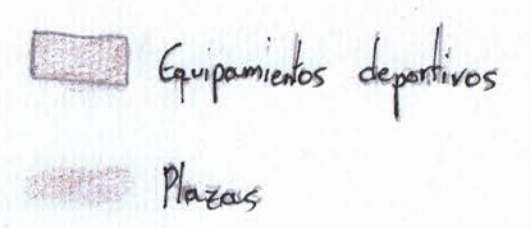 Equipamientos deportivos
Plazas